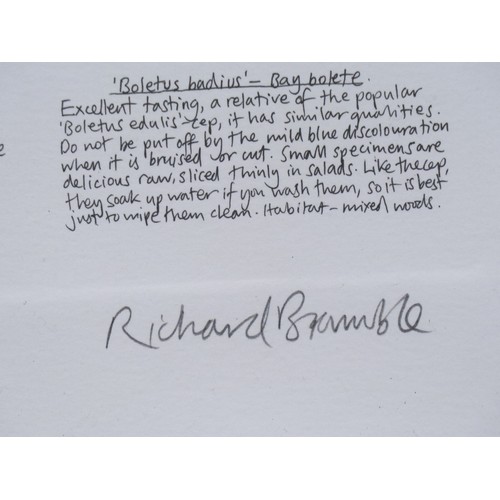 'Boletus badius' – Bay bolete.
Excellent tasting, a relative of the popular
'Boletus edulis' – cep, it has similar qualities.
Do not be put off by the mild blue discolouration
when it is bruised or cut. Small specimens are
delicious raw, sliced thinly in salads. Like the cep,
they soak up water if you wash them, so it is best
just to wipe them clean. Habitat – mixed woods.
Richard Bramble